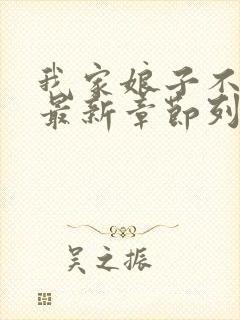 我家娘子不
最新章节列
吴之振